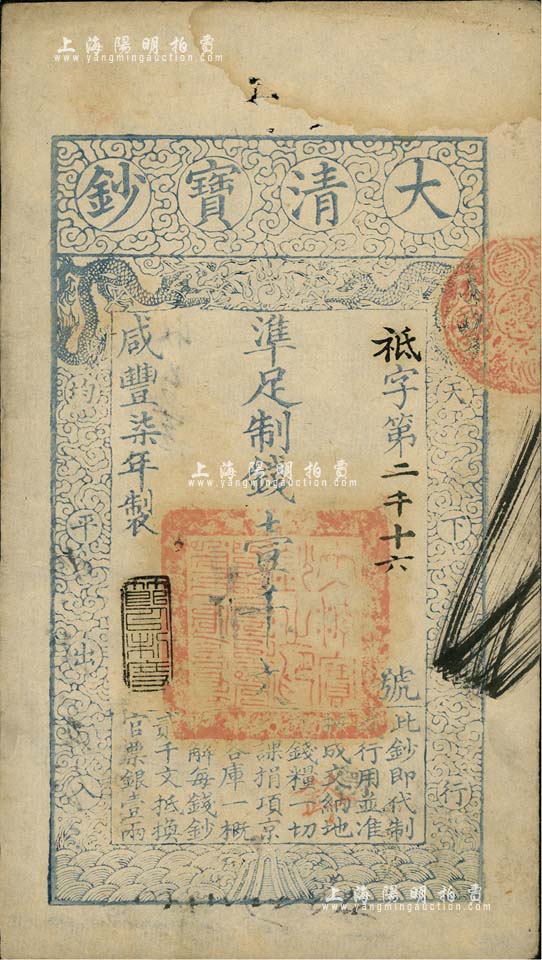 上海陽明拍賣
www.yangmingauction.com
大清寶鈔
祗字第二千十六號
準足制錢壹千文
咸豐柒年製
天下
行
均平出入
上海陽明拍賣
www.yangmingauction.com
此鈔即代制
行用並准
成交納地
錢糧一切
課捐項京
各庫一概
解每錢鈔
貳千文抵換
官票銀壹兩
上海陽明拍賣
www.yangmingauction.com